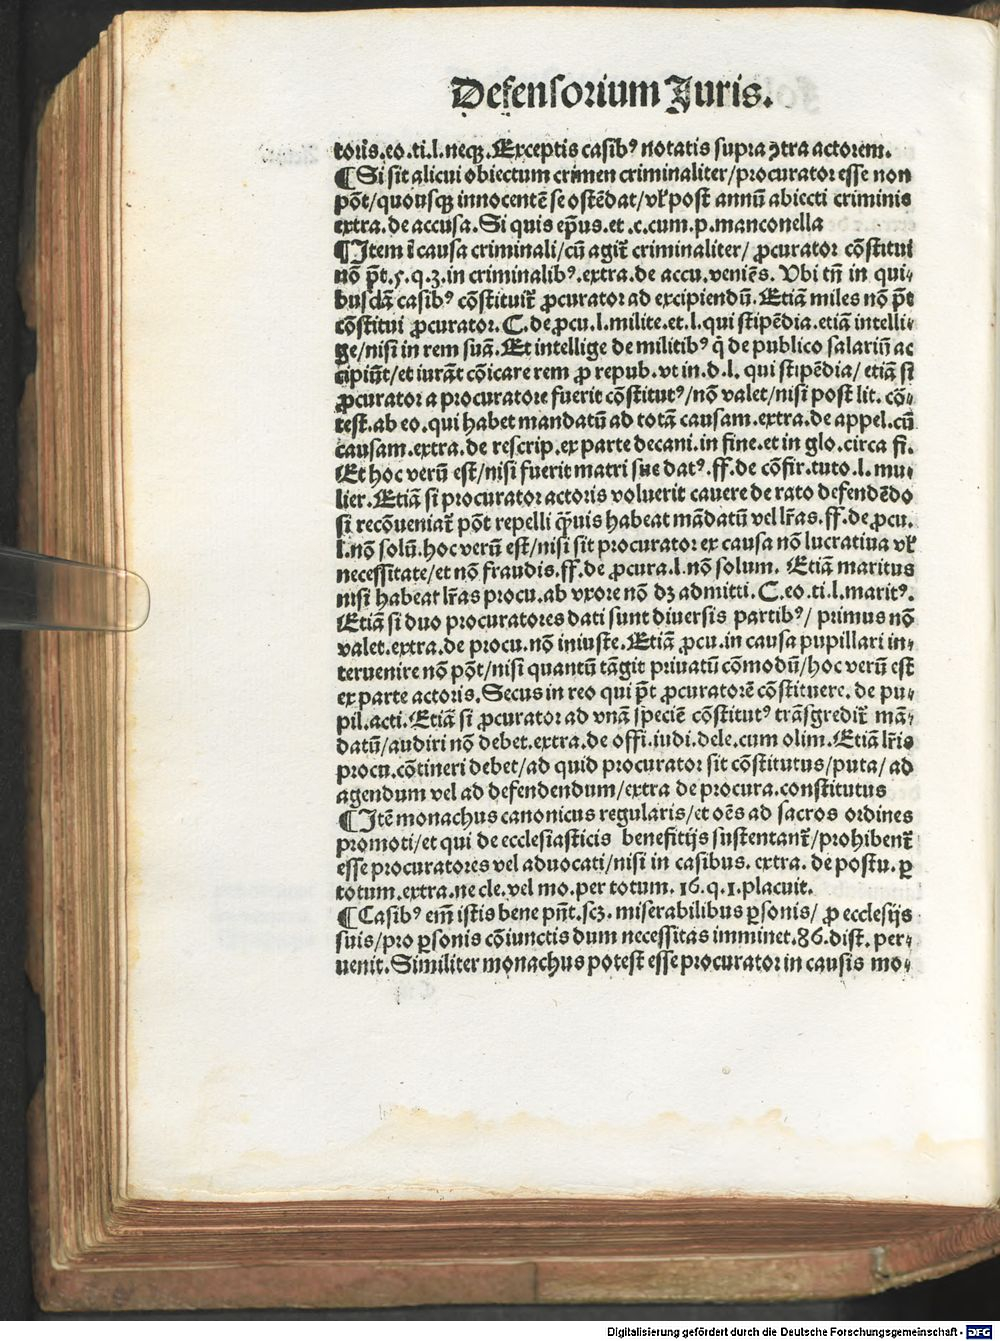 Defensorium Juris.
toris.eo.ti.l.neqꝫ.Exceptis casibꝰ notatis supra ꝯtra actorem.
¶Si sit alicui obiectum crimen criminaliter/procurator esse non
põt/quousqꝫ innocentē se ostēdat/vl̕ post annū abiecti criminis
extra.de accusa.Si quis ep̄us.et .c.cum.p.manconella
¶Item ī causa criminali/cū agit̄ criminaliter/ ꝓcurator cōstitui
nō p̄t.5.q.3.in criminalibꝰ.extra.de accu.veniēs. Ubi tn̄ in qui⸗
busdā casibꝰ cōstituit̄ ꝓcurator ad excipiendū.Etiā miles nō p̄t
cōstitui ꝓcurator. C.de ꝓcu.l.milite.et.l.qui stipēdia.etiā intelli⸗
ge/nisi in rem suā.Et intellige de militibꝰ q̄ de publico salariū ac
cipiūt/et iurāt cōicare rem ꝓ repub.vt in.d.l. qui stipēdia/ etiā si
ꝓcurator a procuratore fuerit cōstitutꝰ/nō valet/nisi post lit. cō⸗
test.ab eo.qui habet mandatū ad totā causam.extra.de appel.cū
causam.extra.de rescrip.ex parte decani.in fine.et in glo.circa fi.
Et hoc verū est/nisi fuerit matri sue datꝰ.ff.de cōfir.tuto.l.mu⸗
lier.Etiā si procurator actoris voluerit cavere de rato defendēdo
si recōueniat̄ põt repelli q̄uis habeat mādatū vel lr̄as.ff.de ꝓcu.
l.nō solū.hoc verū est/nisi sit procurator ex causa nō lucratiua vl̕
necessitate/et nō fraudis.ff.de ꝓcura.l.nō solum. Etiā maritus
nisi habeat lr̄as procu.ab vxore nō dꝫ admitti. C.eo.ti.l.maritꝰ.
Etiā si duo procuratores dati sunt diuersis partibꝰ/ primus nō
valet.extra.de procu.nō iniuste.Etiā ꝓcu.in causa pupillari in⸗
teruenire nō põt/nisi quantū tāgit priuatū cōmodū/hoc verū est
ex parte actoris.Secus in reo qui p̄t ꝓcuratorē cōstituere. de pu⸗
pil.acti.Etiā si ꝓcurator ad vnā speciē cōstitutꝰ trāsgredit̄ mā⸗
datū/audiri nō debet.extra.de offi.iudi.dele.cum olim.Etiā lr̄is
procu.cōtineri debet/ad quid procurator sit cōstitutus/puta/ ad
agendum vel ad defendendum/extra de procura.constitutus
¶Itē monachus canonicus regularis/et oēs ad sacros ordines
promoti/et qui de ecclesiasticis benefitijs sustentant̄/prohibent̄
esse procuratores vel aduocati/nisi in casibus. extra. de postu. ꝑ
totum.extra.ne cle.vel mo.per totum. 16.q.1.placuit.
¶Casibꝰ em̄ istis bene pn̄t.scꝫ. miserabilibus ꝑsonis/ ꝓ ecclesijs
suis/pro ꝑsonis cōiunctis dum necessitas imminet.86.dist. per⸗
uenit.Similiter monachus potest esse procurator in causis mo⸗
Digitalisierung gefördert durch die Deutsche Forschungsgemeinschaft - DFG